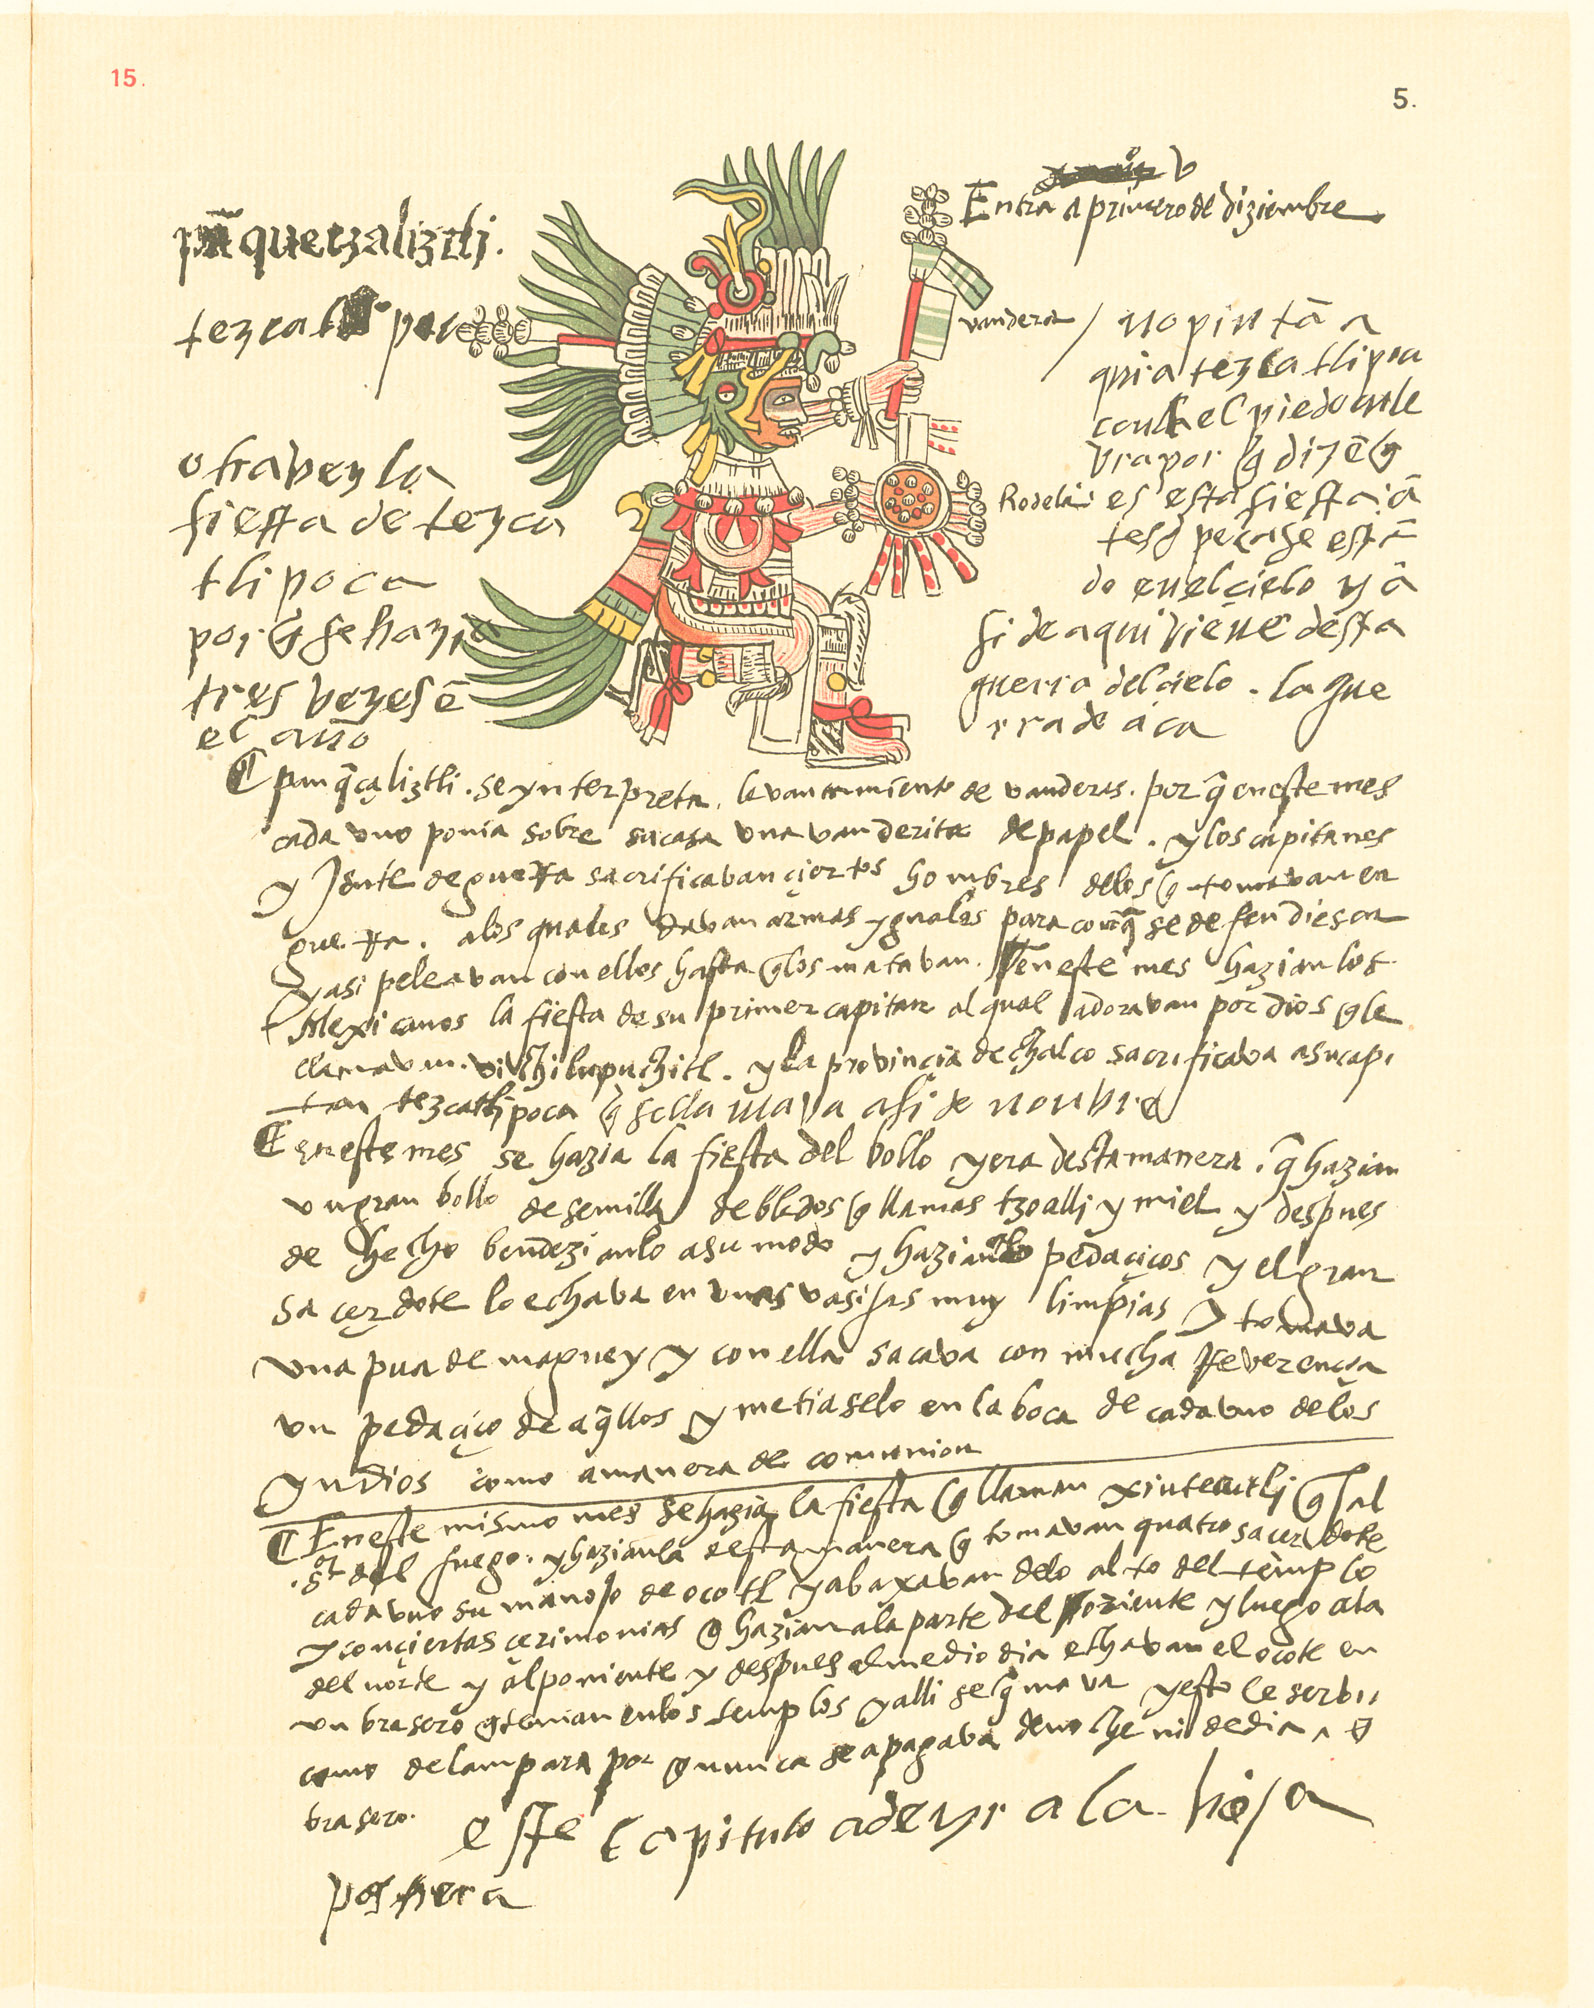 15.
5.
Entra a primero de diziembre
pāquetzaliztli.
tezcatl poca
vandera
no pintā a
qui a tezcatlipoca
con el pie
otra vez la
fiesta de tezca
tlipoca
por q̃ se hazia
tres vezes ē
el año
vra por q̄ dizē q̄
Rodela es esta fiesta
do en el çielo y a
si de aqui viene desta
guerra del cielo. la gue
rra de aca
pan q̃çaliztli. se ynterpreta. levantamiento de vanderas. por q̃ en este mes
cada vno ponia sobre su casa vna vanderita de papel. y los capitanes
y jente de guerra sacrificavan çiertos hombres delos q̄ tomavan en
guerra. alos quales davan armas yguales para con q̃ se defendiesen
y asi peleavan con ellos hasta q̄ los matavan. en este mes hazian los
Mexicanos la fiesta de su primer capitan al qual adoravan por dios q̄ le
llamavan. vitzilupuchitl. y la provinçia de chalco sacrificava a su capi
tan tezcatlipoca q̄ se llamava asi de nonbre
en este mes se hazia la fiesta del bollo y era desta manera. q̃ hazian
vn gran bollo de semilla de bledos q̄ llamas tzoalli y miel y despues
de hecho bendezianlo a su modo y hazianlo pedaçiços y el gran
saçerdote lo echava en vnas vasijas muy limpias y tomava
vna pua de maguey y con ella sacava con mucha reverençia
vn pedaçiço de aq̃llos y metiaselo en la boca de cada vno delos
yndios como a manera de comunion
En este mismo mes se hazia la fiesta q̄ llaman xiuteutli q̄ al
.sor del fuego. y hazianla desta manera q̄ tomavan quatro saçerdote
cada vno su manojo de ocotl y abaxavan delo alto del templo
y con çiertas çerimonias q̄ hazian ala parte del oriente y luego ala
del norte y al poniente y despues al medio dia echavan el ocote en
vn brasero q̄ tenian en los templos y alli se q̃mava y esto le serbi
como de lampara por q̄ nunca se apagava de noche ni de dia, q̄
brasero.
este capitulo a de yr a la hoja
postrera